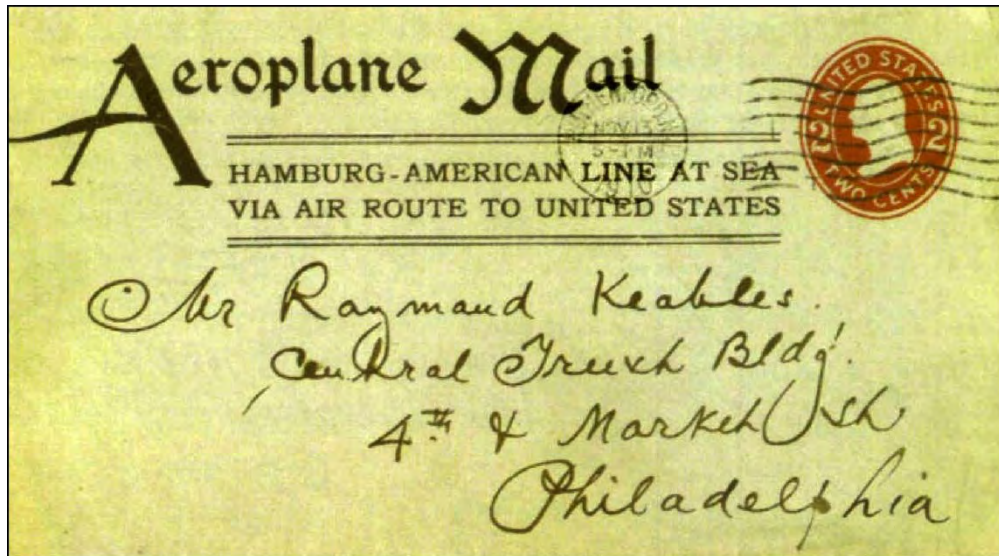 Aeroplane Mail
HAMBURG-AMERICAN LINE AT SEA
VIA AIR ROUTE TO UNITED STATES
NOV 13
1910
UNITED STATES
2 2
TWO CENTS
Mr Raymond Keables.
Central Trust Bldg.
4th & Market St
Philadelphia